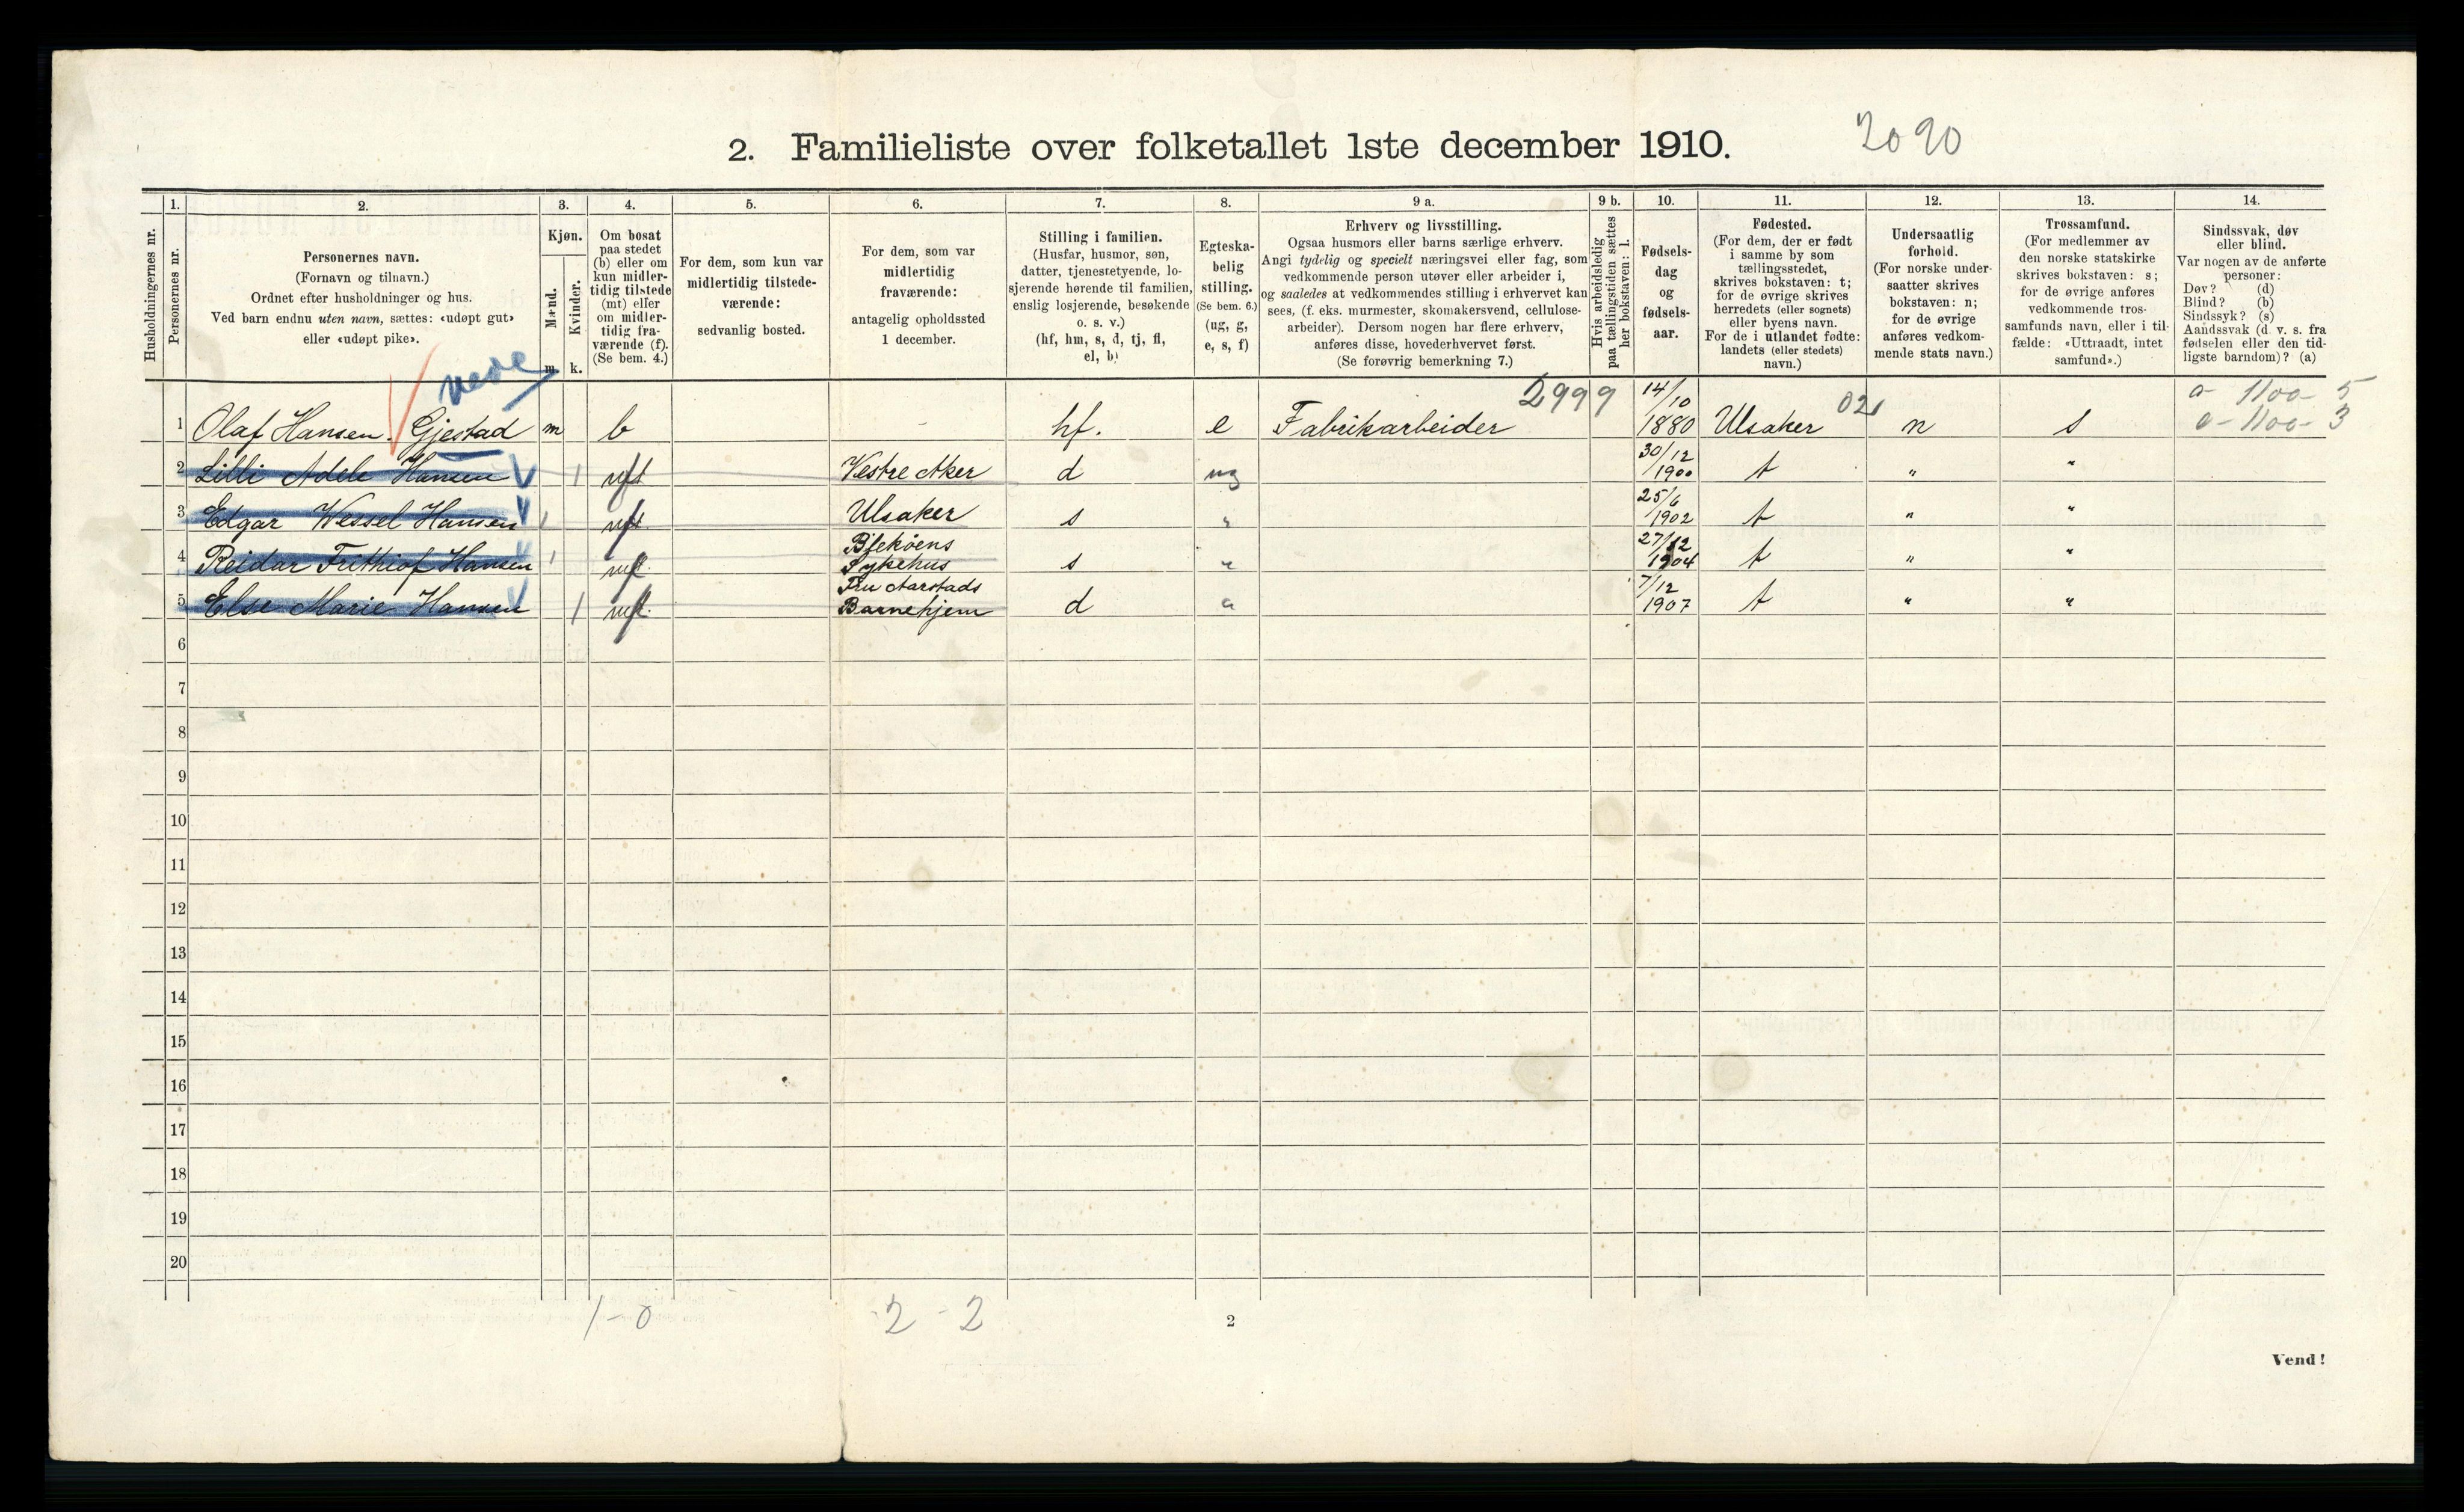 2. Familieliste over folketallet 1ste december 1910.
2090
1. 2. 3. 4. 5. 6. 7. 8. 9 a. 9 b. 10. 11. 12. 13. 14.
Husholdningernes nr.
Personernes nr.
Personernes navn.
(Fornavn og tilnavn.)
Ordnet efter husholdninger og hus.
Ved barn endnu uten navn, sættes: «udøpt gut»
eller «udøpt pike».
Kjøn.
Mænd.
m.
Kvinder.
k.
Om bosat
paa stedet
(b) eller om
kun midler-
tidig tilstede
(mt) eller
om midler-
tidig fra-
værende (f).
(Se bem. 4.)
For dem, som kun var
midlertidig tilstede-
værende:
sedvanlig bosted.
For dem, som var
midlertidig
fraværende:
antagelig opholdssted
1 december.
Stilling i familien.
(Husfar, husmor, søn,
datter, tjenestetyende, lo-
sjerende hørende til familien,
enslig losjerende, besøkende
o. s. v.)
(hf, hm, s, d, tj, fl,
el, b)
Egteska-
belig
stilling.
(Se bem. 6.)
(ug, g,
e, s, f)
Erhverv og livsstilling.
Ogsaa husmors eller barns særlige erhverv.
Angi tydelig og specielt næringsvei eller fag, som
vedkommende person utøver eller arbeider i,
og saaledes at vedkommendes stilling i erhvervet kan
sees, (f. eks. murmester, skomakersvend, cellulose-
arbeider). Dersom nogen har flere erhverv,
anføres disse, hovederhvervet først.
(Se forøvrig bemerkning 7.)
Hvis arbeidsledig
paa tællingstiden sættes
her bokstaven: l.
Fødsels-
dag
og
fødsels-
aar.
Fødested.
(For dem, der er født
i samme by som
tællingsstedet,
skrives bokstaven: t;
for de øvrige skrives
herredets (eller sognets)
eller byens navn.
For de i utlandet fødte:
landets (eller stedets)
navn.)
Undersaatlig
forhold.
(For norske under-
saatter skrives
bokstaven: n;
for de øvrige
anføres vedkom-
mende stats navn.)
Trossamfund.
(For medlemmer av
den norske statskirke
skrives bokstaven: s;
for de øvrige anføres
vedkommende tros-
samfunds navn, eller i til-
fælde: «Uttraadt, intet
samfund».)
Sindssvak, døv
eller blind.
Var nogen av de anførte
personer:
Døv? (d)
Blind? (b)
Sindssyk? (s)
Aandssvak (d. v. s. fra
fødselen eller den tid-
ligste barndom)? (a)
1 Olaf Hansen. Gjestad m b - hf. e Fabrikarbeider 2999 14/10 1880 Ulsaker 02 n s
0- 1100- 5
0- 1100- 3
2 Lilli Adele Hansen 1 Vestre Aker d ug 30/12 1900 t " "
3 Edgar Wessel Hansen 1 Ulsaker s " 25/6 1902 t " "
4 Reidar Frithiof Hansen 1 Sykehus s " 27/12 1904 t " "
5 Else Marie Hansen 1 Fru Aarstads Barnehjem d " 7/12 1907 t " "
6
7
8
9
10
11
12
13
14
15
16
17
18
19
20
1 - 0
2 - 2
2
Vend!